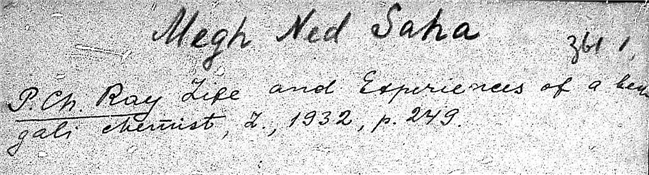 Megh Ned Saha
361 1
P. Ch. Ray Life and Experiences of a ben
gali chemist, L., 1932, p. 249.